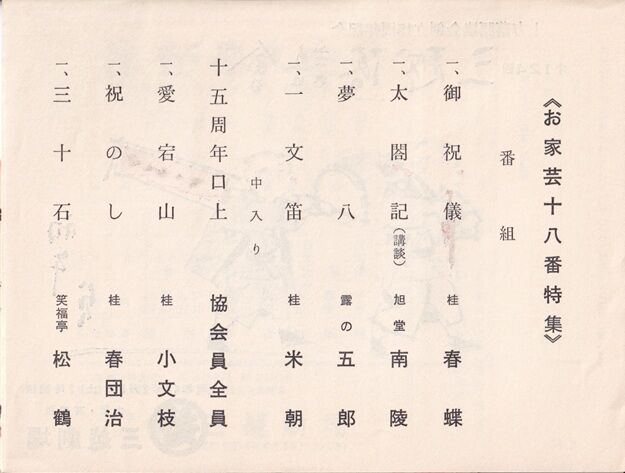 《お家芸十八番特集》
番組
一、御祝儀 桂 春蝶
一、太閤記(講談) 旭堂 南陵
一、夢八 露の 五郎
一、一文笛 桂 米朝
中入り
十五周年口上 協会員全員
一、愛宕山 桂 小文枝
一、祝のし 桂 春団治
一、三十石 笑福亭 松鶴